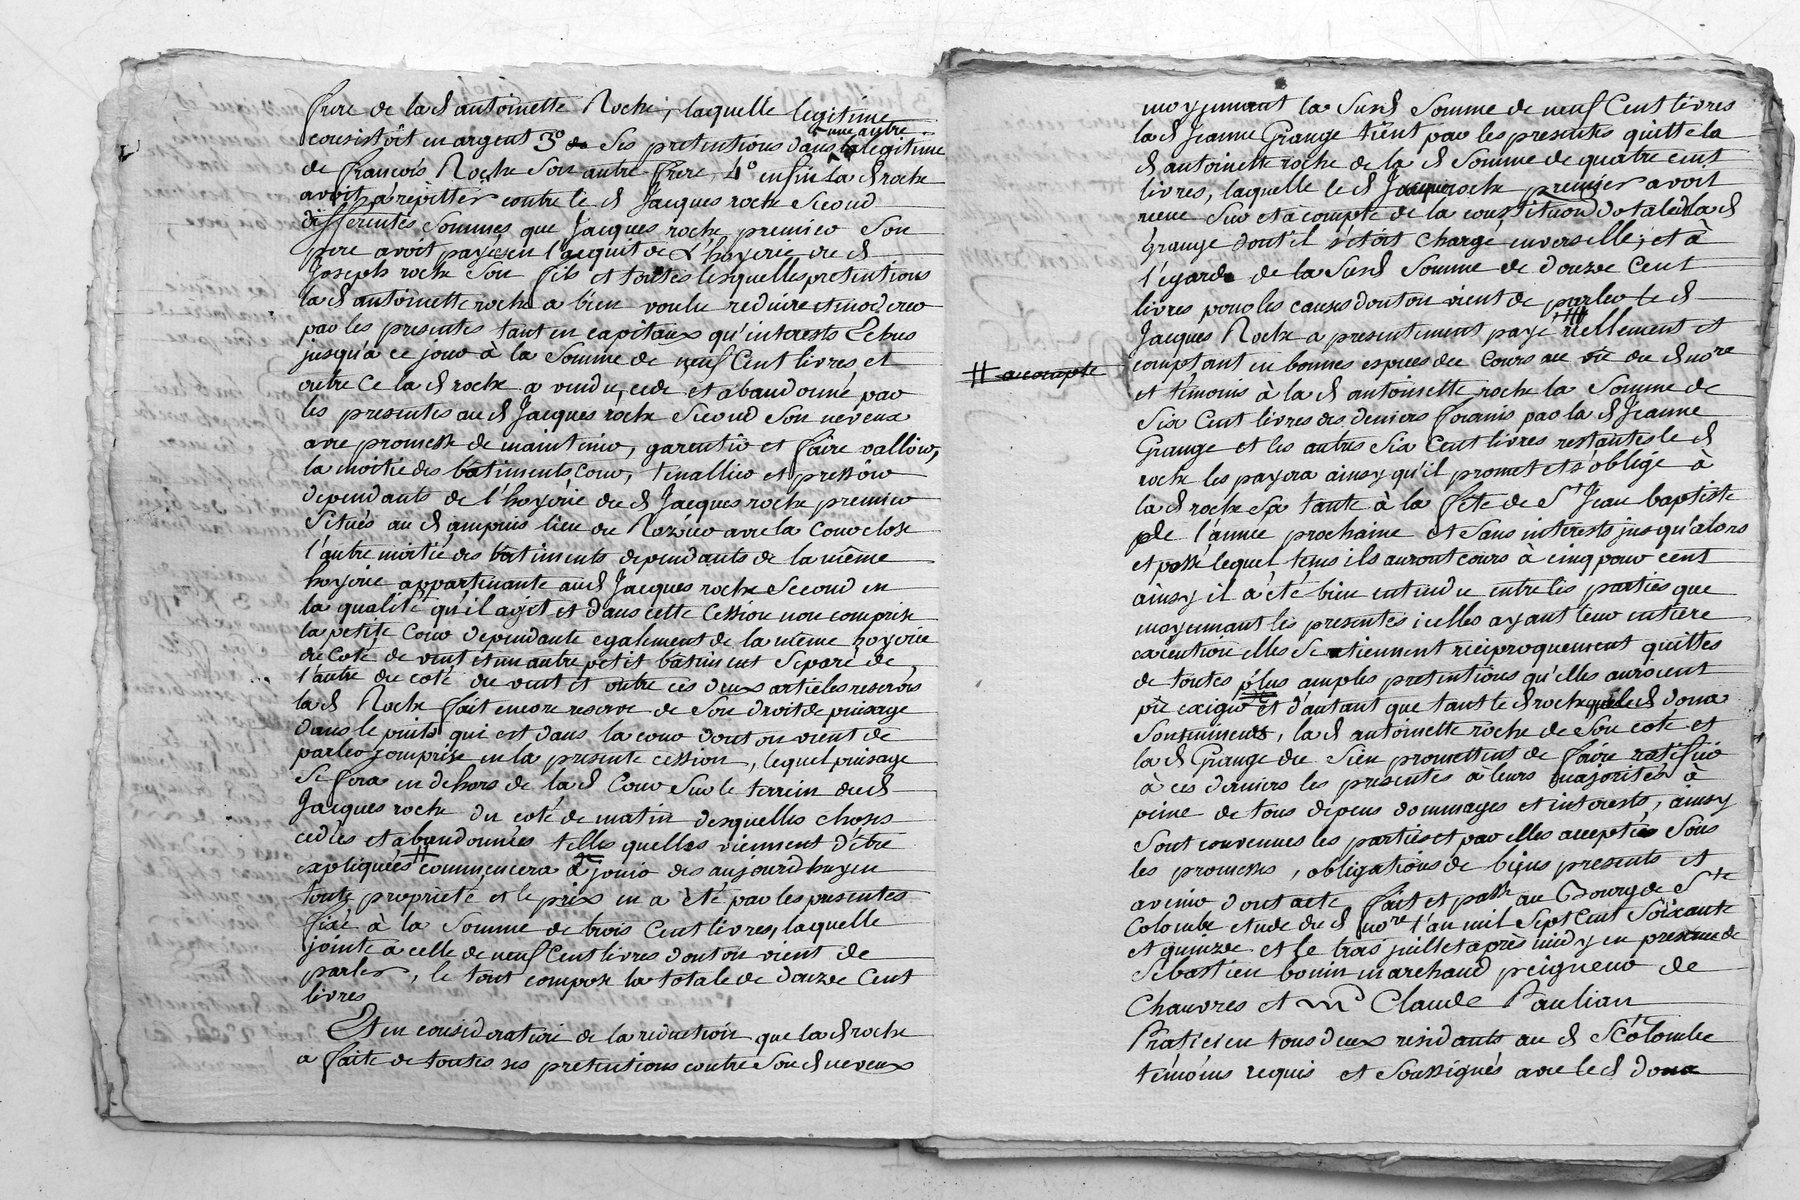 frere de la d antoinette Roche, laquelle legitime
consistoit en argent 3° de ses pretentions dans la legitime
une autre
de francois Roche son autre frere, 4° enfin la d roche
avoit à répetter contre le d Jacques roche second
differentes sommes que Jacques roche premier son
pere avoit payé en l'acquit de l'hoyerie du d
Joseph roche son fils et toutes lesquelles pretentions
la d antoinette roche a bien voulu reduire et moderer
par les presentes tant en capitaux qu'interests Echus
jusqu'à ce jour à la somme de neuf Cent livres, et
outre ce la d roche a vendu, cedé et abandonné par
les presentes au d Jacques roche second son neveux
avec promesse de maintenir, garentir et faire vallior,
la moitié des bâtiments cour, tenallier et pressoir
dependants de l'hoyrie du d Jacques roche premier
situés au d lieu du avec la Cour close
l'autre moitié des bâtiments dependants de la même
hoyrie appartenante aud Jacques roche second en
la qualité qu'il agit et dans cette Cession non comprise
la petite Cour dependante egalement de la même hoyrie
du Coté de vent et un autre petit bâtiment separé de
l'autre du coté du vent et outre ces deux articles reservés
la d Roche fait encore reserve de son droit de puisage
dans le puits qui est dans la cour dont on vient de
parler comprise en la presente cession, lequel puisage
se fera en dehors de la d Cour sur le terrein dud
Jacques roche du coté de matin desquelles choses
cedées et abandonnées telles quelles viennent d'être
expliquées commencera à jouir des aujourdhuy en
toute proprieté et le prix en a été par les presentes
fixé à la somme de trois Cent livres, laquelle
jointe à celle de neuf Cent livres dont on vient de
parler, le tout compose la totale de douze Cent
livres
Et en consideration de la reduction que la d roche
a faite de toutes ses pretentions contre son d neveux
moyennant la susd somme de neuf Cent livres
la d Jeanne Grange tient par les presentes quitte la
d antoinette roche de la d somme de quatre cent
livres, laquelle le d Jacques roche premier avoit
receue sur et à compte de la constitution dotale de la d
Grange dont il s'étoit chargé envers elle, et à
l'égard de la susd somme de douze Cent
livres pour les causes dont on vient de parler le d
Jacques Roche a presentement payé réellement et
# a compte
comptant en bonnes especes du cours au vu du d nore
et témoins à la d antoinette roche la somme de
six Cent livres des deniers fournis par la d Jeanne
Grange et les autres six Cent livres restantes le d
roche les payera ainsy qu'il promet et s'oblige à
la d roche sa tante à la fête de St Jean baptiste
de l'année prochaine et sans interests jusqu'alors
et passé lequel tems ils auront cours à cinq pour cent
ainsy il a été bien entendu entre les parties que
moyennant les presentes icelles ayant leur entiere
exécution elles se tiennent réciproquement quittes
de toutes plus amples pretentions qu'elles auroient
pû exiger et d'autant que tant le d roche que le d dona
sont mineurs, la d antoinette roche de son coté et
la d Grange du sien promettent de faire ratifier
à ces derniers les presentes a leurs majorités à
peine de tous depens dommages et interests, ainsy
sont convenues les parties et par elles acceptés sous
les promesses, obligations de biens presents et
avenir dont acte fait et passé au Bourg de Ste
Colombe etude du d nore l'an mil Sept Cent Soixante
et quinze et le trois juillet après midy en presence de
Sebastien bonin marchand peigneur de
Chanvres et mr Claude Paulian
Praticien tous deux residants au d Ste Colombe
témoins requis et soussignés avec le d dona